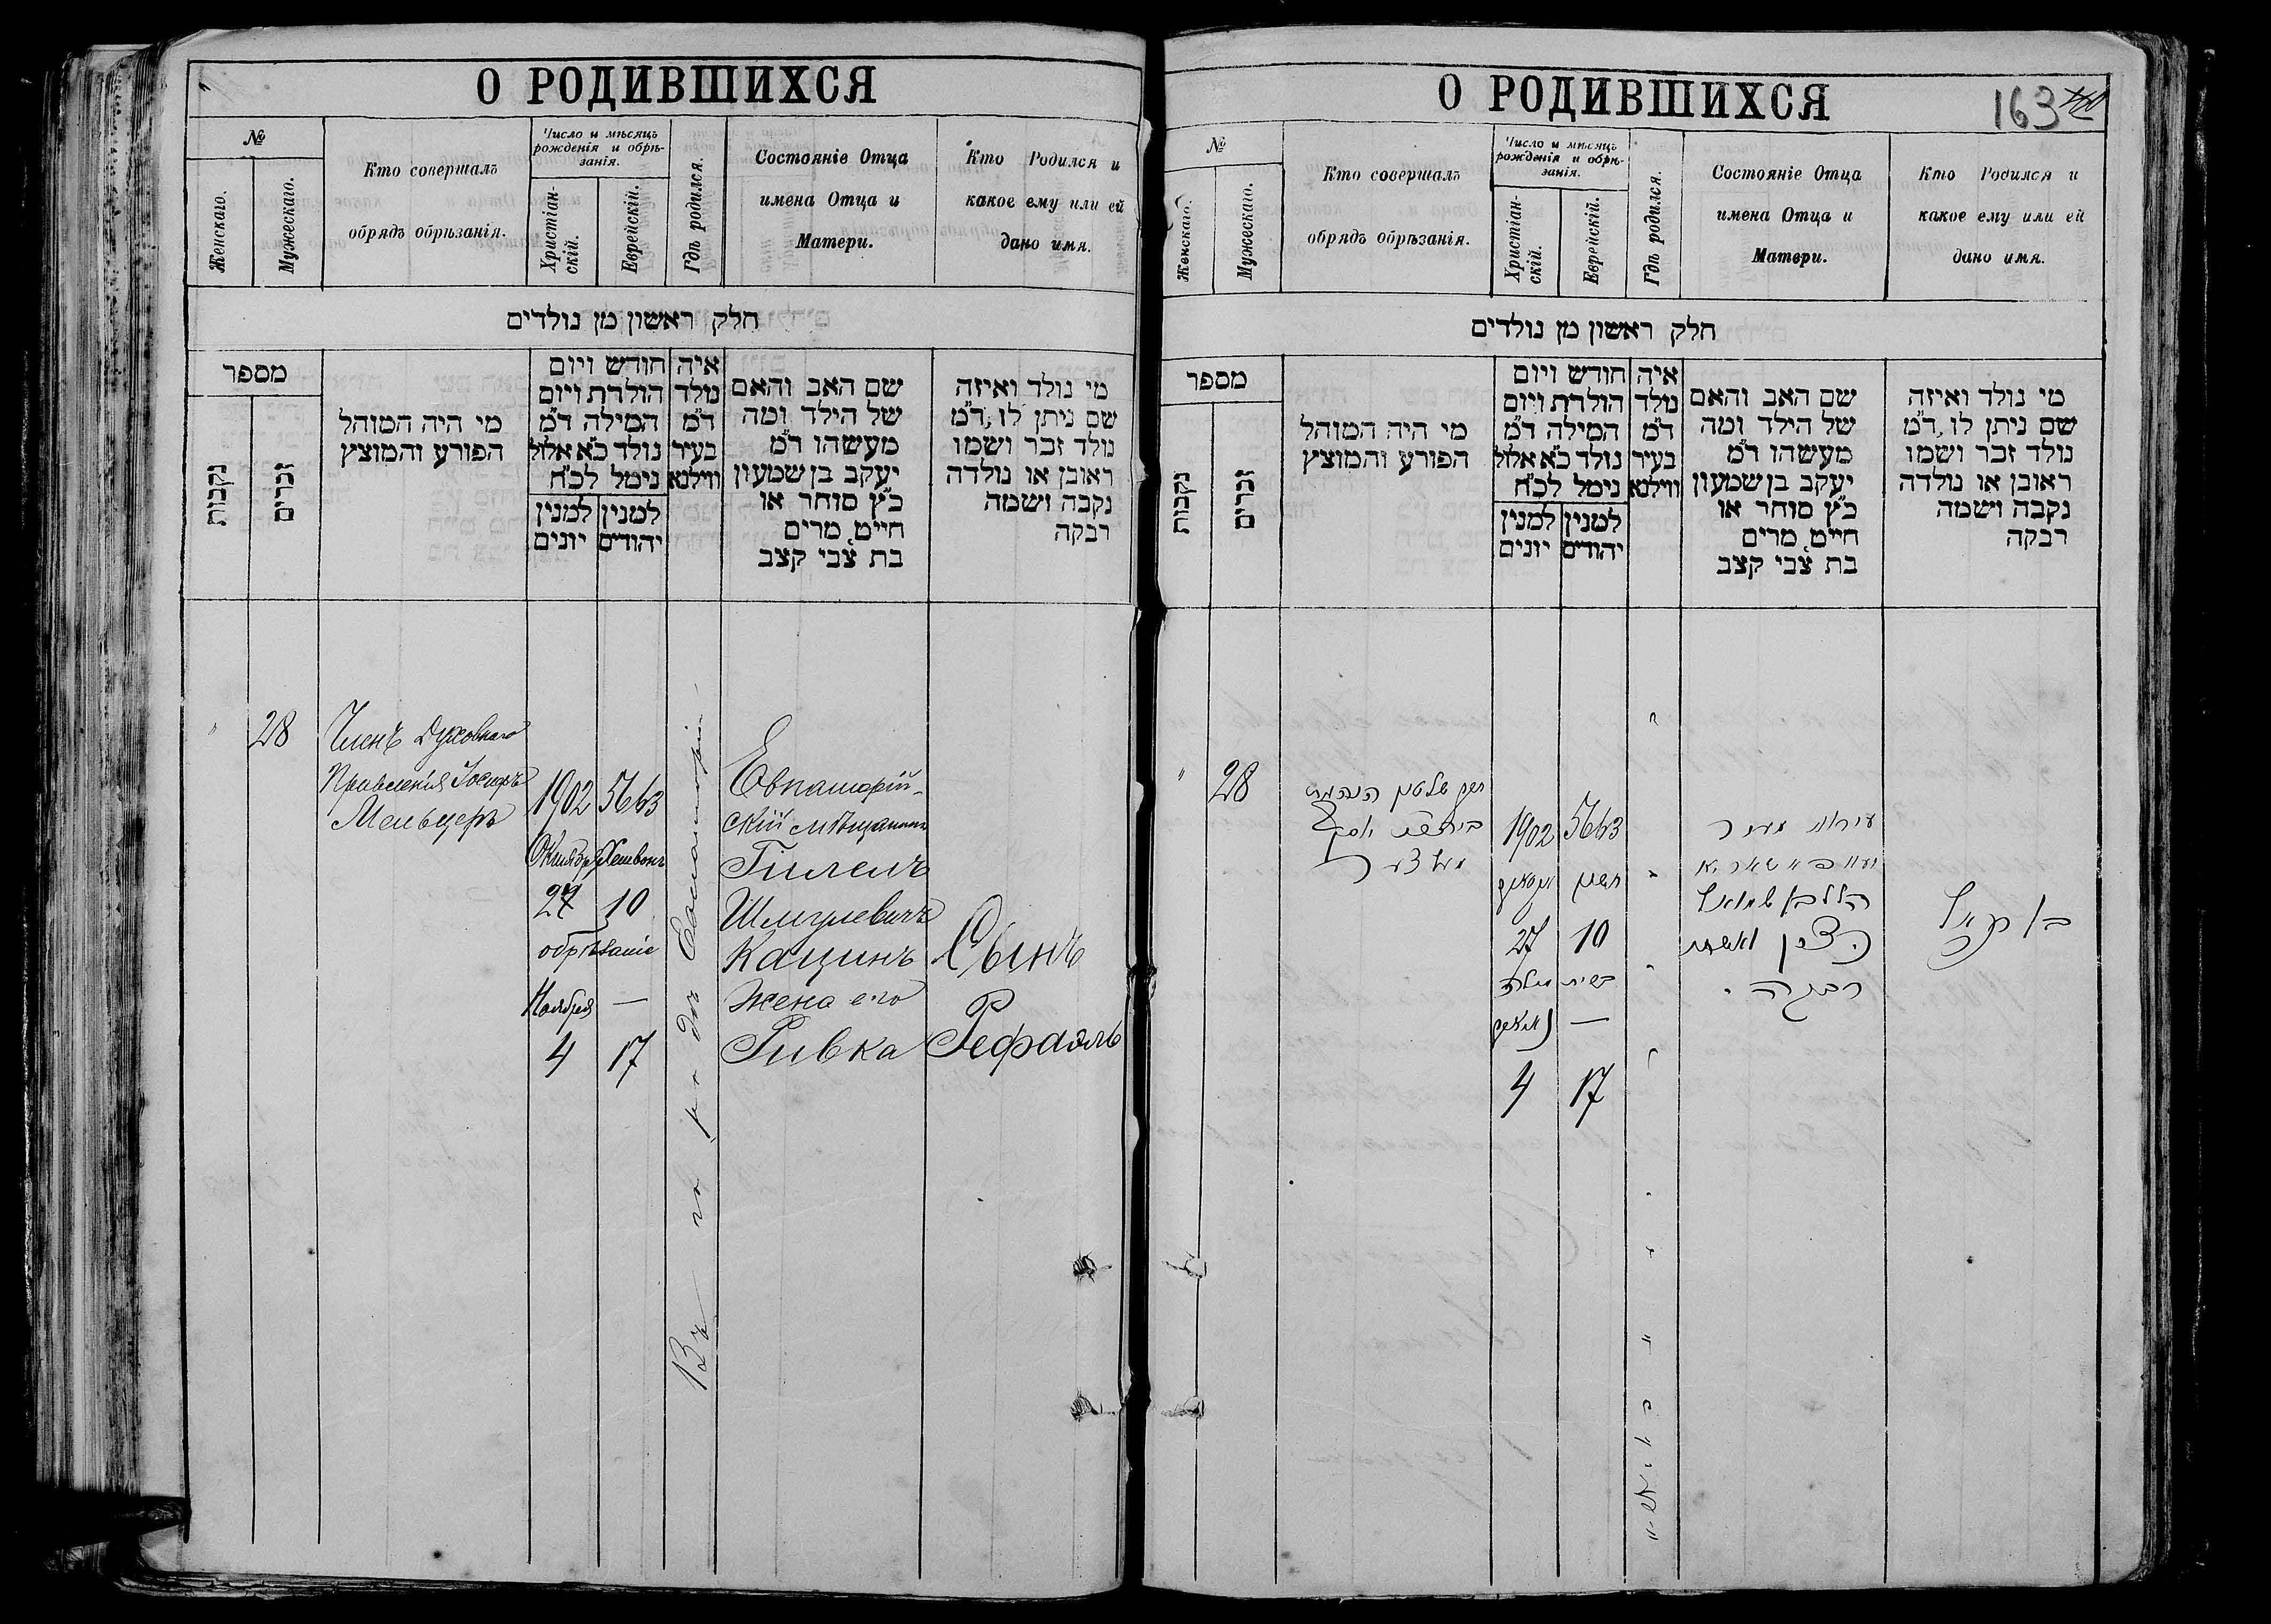 О РОДИВШИХСЯ
№
Женскаго.
Мужескаго.
Кто совершалъ
обрядъ обрѣзанія.
Число и мѣсяцъ
рожденія и обрѣ-
занія.
Христіан-
скій.
Еврейскій.
Гдѣ родился.
Состояніе Отца
имена Отца и
Матери.
Кто Родился и
какое ему или ей
дано имя.
חלק ראשון מן נולדים
מספר
נקבות
זכרים
מי היה המוהל
הפורע והמוצץ
חודש ויום
הולדת ויום
המילה ד״מ
נולד כ״א אלול
נימל לכ״ח
למנין
יונים
למנין
יהודים
איה
נולד
ד״מ
בעיר
ווילנא
שם האב והאם
של הילד ומה
מעשהו ד״מ
יעקב בן שמעון
כ״ץ סוחר או
חייט, מרים
בת צבי קצב
מי נולד ואיזה
שם ניתן לו, ד״מ
נולד זכר ושמו
ראובן או נולדה
נקבה ושמה
רבקה
" 28
Членъ Духовнаго
Правленія Іосифъ
Мельцеръ
1902 5663
Октября Хешвонъ
27 10
обрѣзаніе
Ноября —
4 17
Въ городѣ Евпаторіи
Евпаторій-
скій мѣщанинъ
Гилелъ
Шмулевичъ
Кацинъ
жена его
Ривка
Сынъ
Рефаэль
О РОДИВШИХСЯ
163
№
Женскаго.
Мужескаго.
Кто совершалъ
обрядъ обрѣзанія.
Число и мѣсяцъ
рожденія и обрѣ-
занія.
Христіан-
скій.
Еврейскій.
Гдѣ родился.
Состояніе Отца
имена Отца и
Матери.
Кто Родился и
какое ему или ей
дано имя.
חלק ראשון מן נולדים
מספר
נקבות
זכרים
מי היה המוהל
הפורע והמוצץ
חודש ויום
הולדת ויום
המילה ד״מ
נולד כ״א אלול
נימל לכ״ח
למנין
יונים
למנין
יהודים
איה
נולד
ד״מ
בעיר
ווילנא
שם האב והאם
של הילד ומה
מעשהו ד״מ
יעקב בן שמעון
כ״ץ סוחר או
חייט, מרים
בת צבי קצב
מי נולד ואיזה
שם ניתן לו, ד״מ
נולד זכר ושמו
ראובן או נולדה
נקבה ושמה
רבקה
" 28
1902 5663
חשון
27 10
ברית מילה
—
4 17
הלל בן שמואל
קצין ואשתו
רבקה
בן רפאל